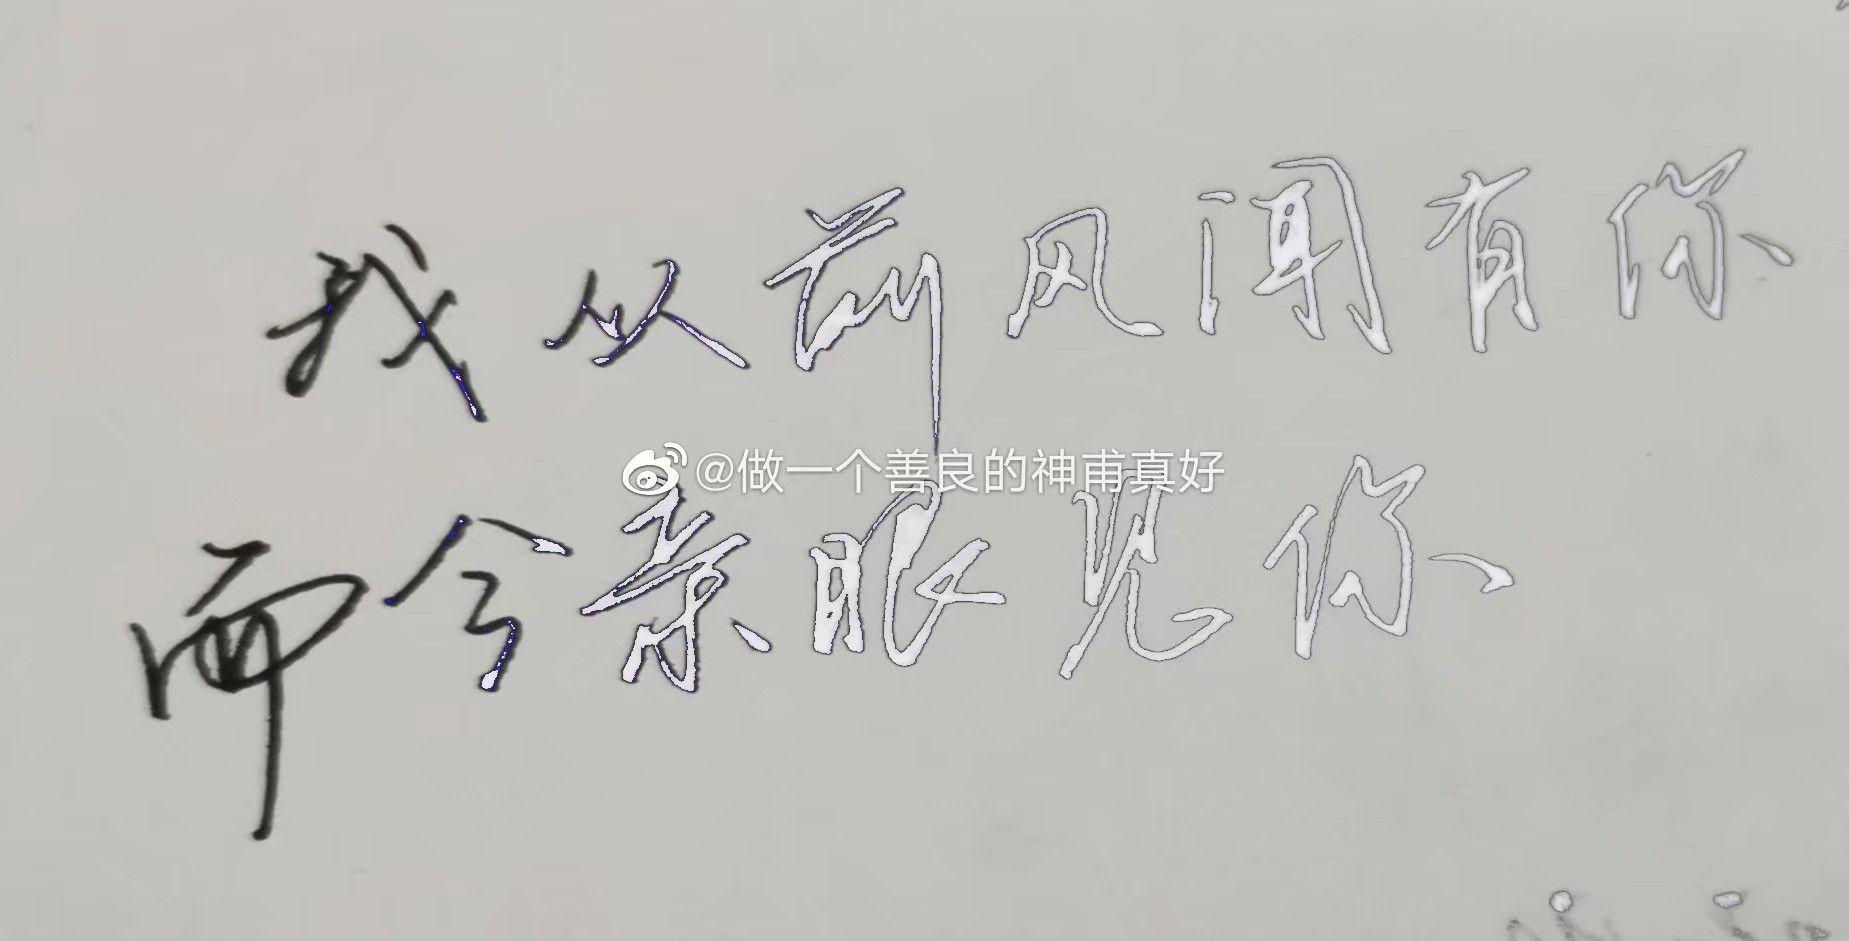 我从前风闻有你
@做一个善良的神甫真好
而今亲眼见你